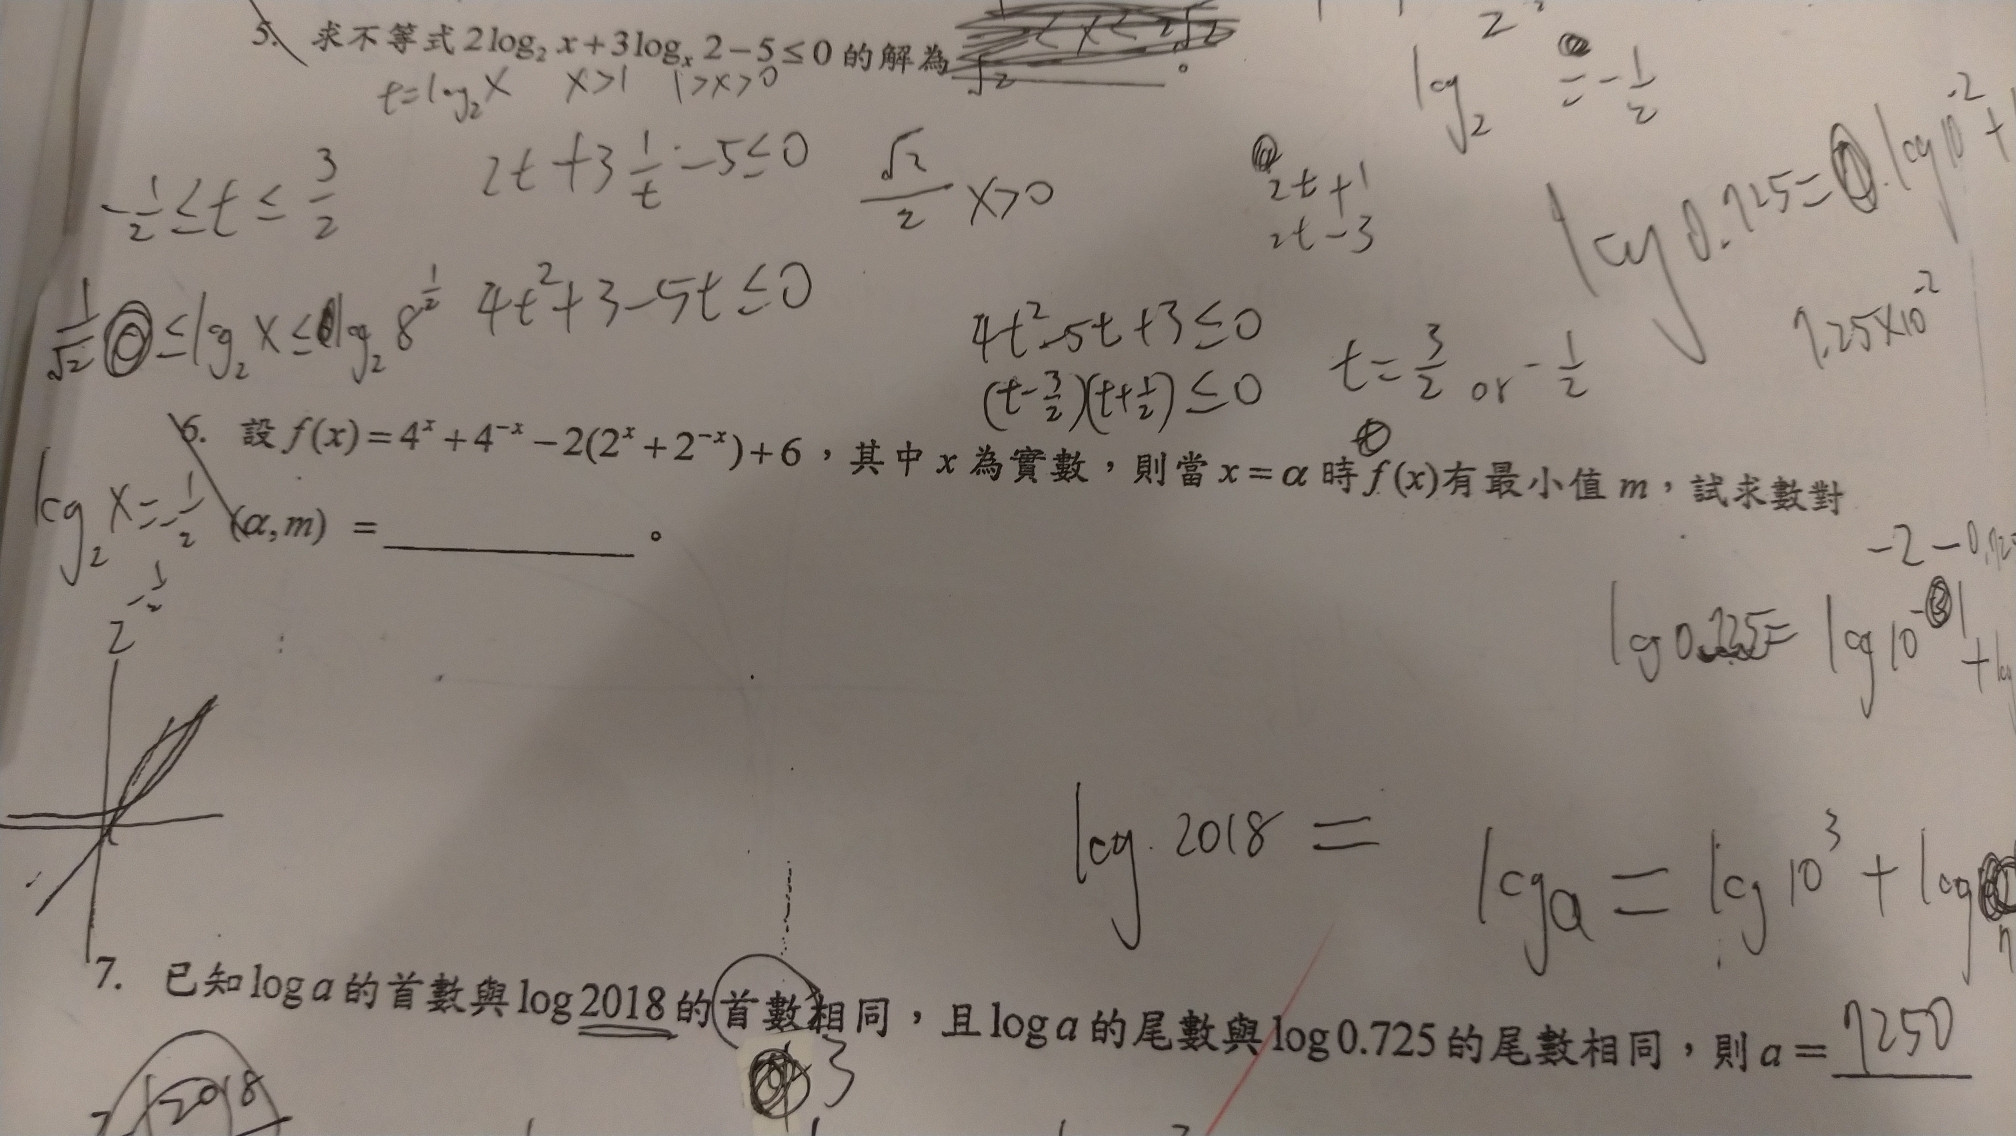 5. 求不等式 2log₂ x+3logₓ 2−5≤0 的解為 √2 。
t=log₂X X>1 1>X>0
2t+3 1/t −5≤0
-1/2≤t≤3/2
√2/2 X>0
2t+1
2t-3
4t²+3-5t≤0
1/√2 ≤log₂X≤log₂8^(1/2)
4t²-5t+3≤0
(t-3/2)(t+1/2)≤0
t=3/2 or -1/2
log₂ =-1/2
log0.725= log10⁻²+
7.25×10⁻²
6. 設 f(x)=4ˣ+4⁻ˣ−2(2ˣ+2⁻ˣ)+6，其中 x 為實數，則當 x=α 時 f(x)有最小值 m，試求數對
(α,m) = 。
log₂X=-1/2
2^(-1/2)
log10
log 2018 =
log a = log 10³ + log
7. 已知log a 的首數與log 2018 的首數相同，且log a 的尾數與log 0.725 的尾數相同，則 a= 7250
3
2018